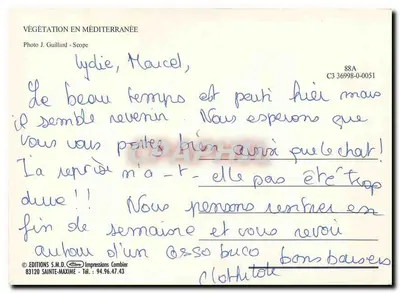 VÉGÉTATION EN MÉDITERRANÉE
Photo J. Guillard - Scope
88A
C3 36998-0-0051
Lydie, Marcel,
Le beau temps est parti hier mais
il semble revenir. Nous esperons que
vous vous portez bien ainsi que le chat!
La reprise n'a-t-elle pas été trop
dure!! Nous pensons rentrer en
fin de semaine et vous revoir
autour d'un osso buco bons baisers
© EDITIONS S.M.D. Impressions Combier
83120 SAINTE-MAXIME - Tél. : 94.96.47.43
Clothilde